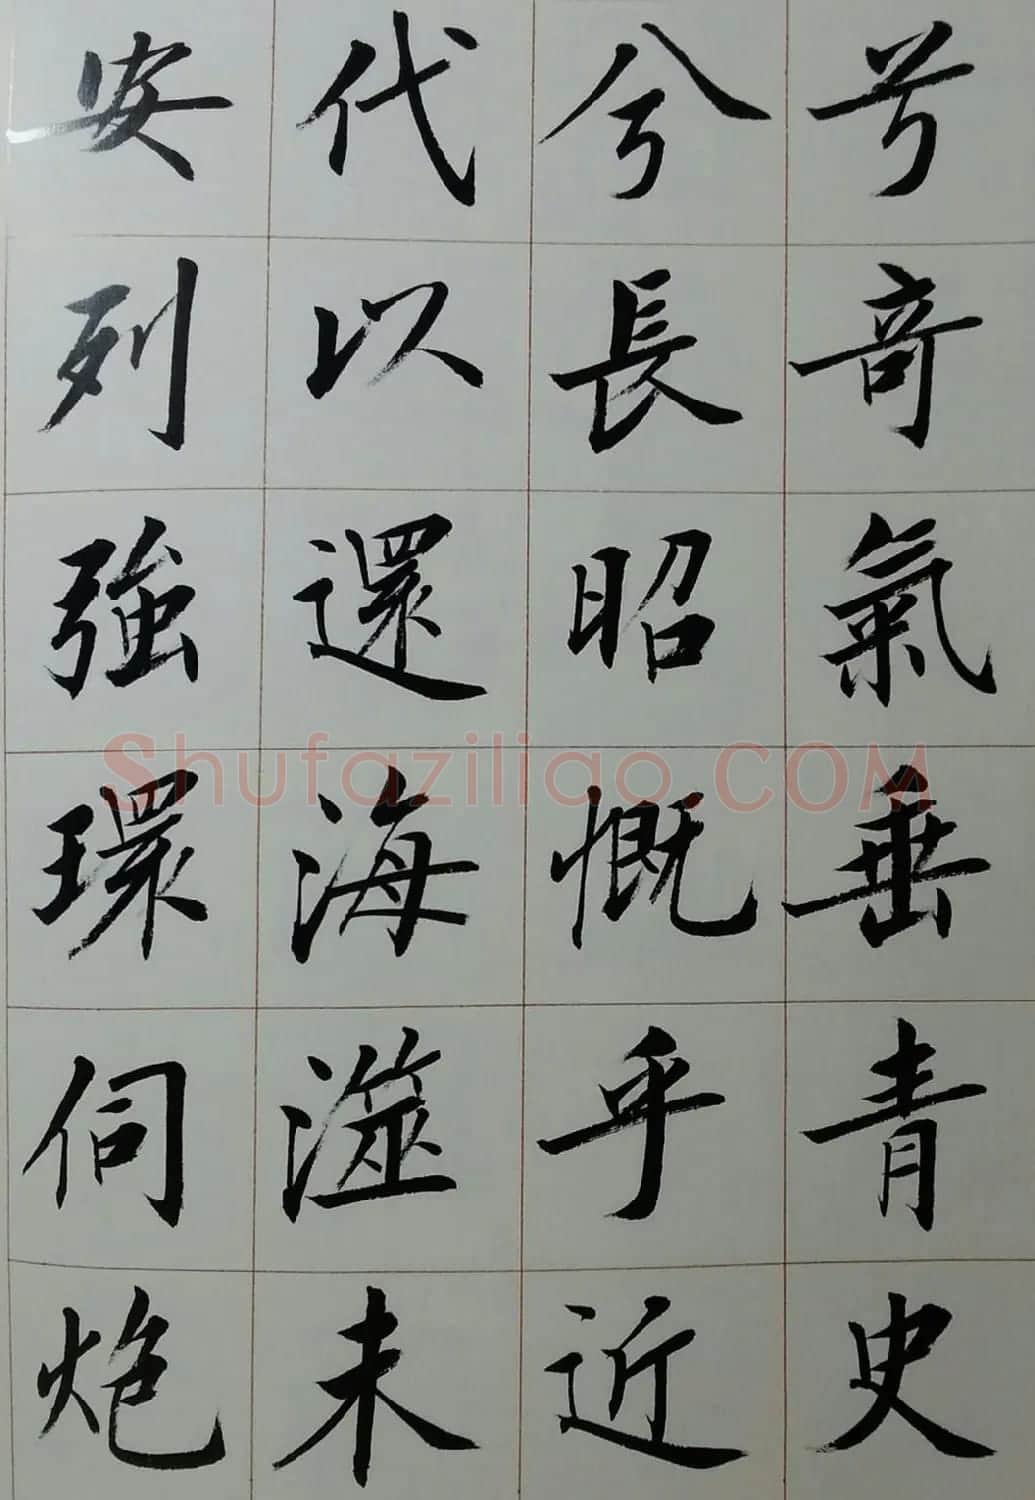 兮奇氣垂青史
兮長昭慨乎近
代以還海澨未
安列強環伺炮
Shufaziliao.COM